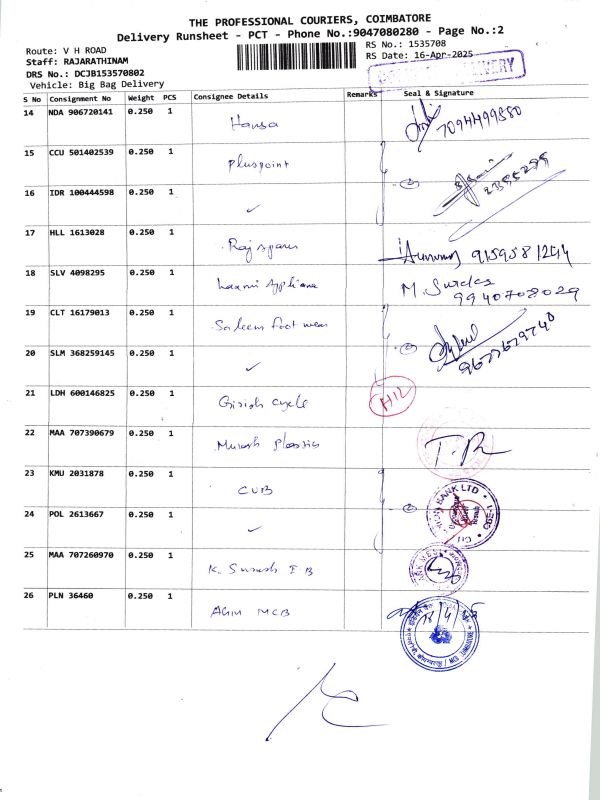 THE PROFESSIONAL COURIERS, COIMBATORE
Delivery Runsheet - PCT - Phone No.:9047080280 - Page No.:2
Route: V H ROAD
RS No.: 1535708
Staff: RAJARATHINAM
RS Date: 16-Apr-2025
DRS No.: DCJB153570802
DELIVERY
Vehicle: Big Bag Delivery
S No Consignment No Weight PCS Consignee Details Remarks Seal & Signature
14 NDA 906720141 0.250 1 Hansa 7094499880
15 CCU 501402539 0.250 1 Pluspoint
16 IDR 100444598 0.250 1 ✓
17 HLL 1613028 0.250 1 Raj spares
18 SLV 4098295 0.250 1 Laxmi Appliance M. Suresh
9940708029
19 CLT 16179013 0.250 1 Saleem foot wear
20 SLM 368259145 0.250 1 ✓
21 LDH 600146825 0.250 1 Girish cycle
22 MAA 707390679 0.250 1 Mukesh Plastics
23 KMU 2031878 0.250 1 CUB
24 POL 2613667 0.250 1 ✓
25 MAA 707260970 0.250 1 K. Suresh I B
26 PLN 36460 0.250 1 MCB